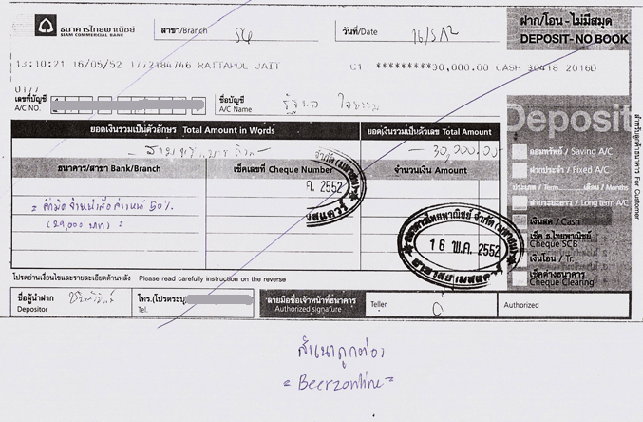 ธนาคารไทยพาณิชย์
SIAM COMMERCIAL BANK
สาขา/Branch
วันที่/Date 16/5/52
ฝาก/โอน - ไม่มีสมุด
DEPOSIT - NO BOOK
13:10:21 16/05/52 RATTAPOL JAIT C1 *********30,000.00 CASH
เลขที่บัญชี
A/C NO.
ชื่อบัญชี
A/C Name
Deposit
ยอดเงินรวมเป็นตัวอักษร Total Amount in Words
ยอดเงินรวมเป็นตัวเลข Total Amount
- สามหมื่นบาทถ้วน -
- 30,000.00
ออมทรัพย์ / Saving A/C
ธนาคาร/สาขา Bank/Branch
เช็คเลขที่ Cheque Number
จำนวนเงิน Amount
ฝากประจำ / Fixed A/C
ประเภท / Term เดือน / Months
Long term A/C
ค. 2552
50%
(29,000 บาท)
เงินสด / Cash
เช็ค ธ.ไทยพาณิชย์
Cheque SCB
เงินโอน / Tr.
เช็คต่างธนาคาร
Cheque Clearing
ธนาคารไทยพาณิชย์ จำกัด
16 พ.ค. 2552
สำหรับลูกค้าธนาคาร For Customer
โปรดอ่านเงื่อนไขและรายละเอียดด้านหลัง Please read carefully instruction on the reverse
ชื่อผู้นำฝาก
Depositor
โทร.
Tel.
ลายมือชื่อเจ้าหน้าที่ธนาคาร
Authorized signature
Teller
Authorized
สำเนาถูกต้อง
= Beerzonline =